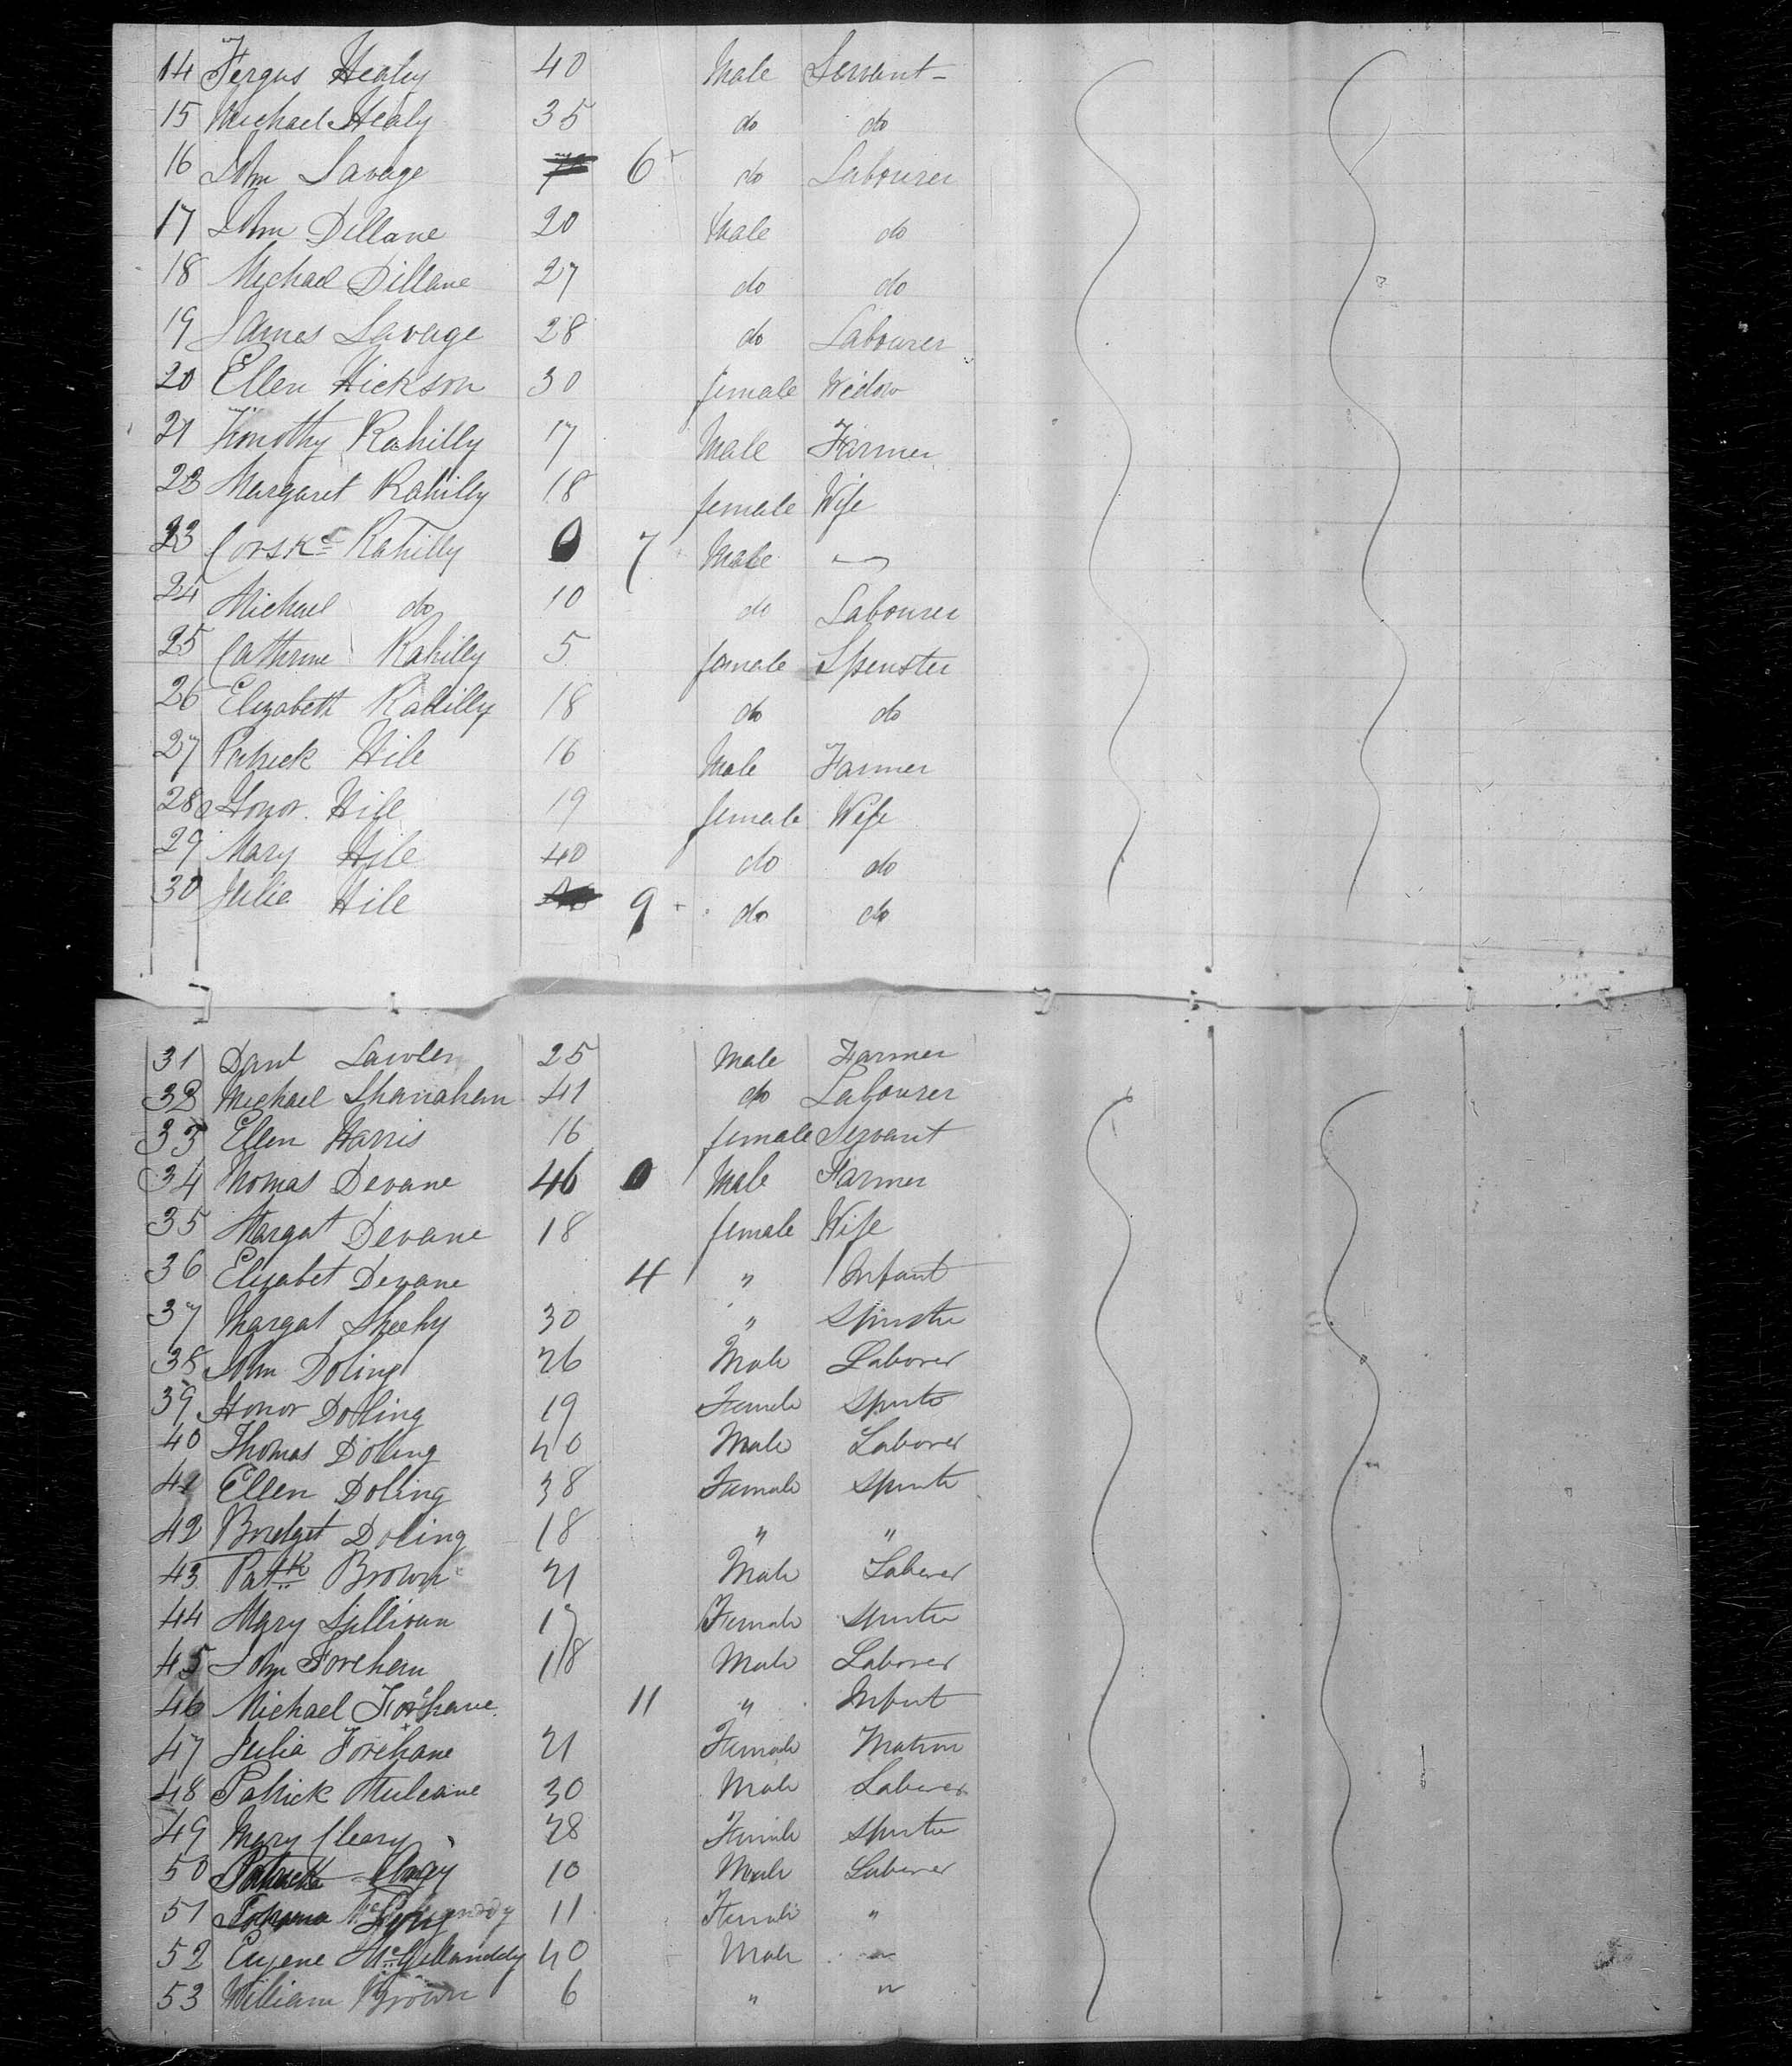 14 Fergus Healy 40 Male Servant
15 Michael Healy 35 do do
16 John Savage 6 do Labourer
17 John Dillane 20 Male do
18 Michael Dillane 27 do do
19 James Savage 28 do Labourer
20 Ellen Hickson 30 female Widow
21 Timothy Rahilly 17 Male Farmer
22 Margaret Rahilly 18 female Wife
23 Rahilly 7 Male
24 Michael do 10 do Labourer
25 Catherine Rahilly 5 female Spenster
26 Elizabeth Rahilly 18 do do
27 Patrick Hile 16 Male Farmer
28 Honor Hile 19 female Wife
29 Mary Hile 40 do do
30 Julia Hile 9 do do
31 Lawler 25 Male Farmer
32 Michael Shanahan 41 do Labourer
33 Ellen Harris 16 female Servant
34 Thomas Devane 46 Male Farmer
35 Margat Devane 18 female Wife
36 Elizabet Devane 4 " Infant
37 Margat Sheehy 30 " Spinster
38 John Doling 26 Male Laborer
39 Honor Doling 19 Female Spinster
40 Thomas Doling 40 Male Laborer
41 Ellen Doling 38 Female Spinster
42 Bridget Doling 18 " "
43 Patk Brown 21 Male Laborer
44 Mary Sullivan 17 Female Spinster
45 John Forehan 18 Male Laborer
46 Michael Forhane 11 " Infant
47 Julia Forehane 21 Female Matron
48 Patrick Mulcane 30 Male Laborer
49 Mary Cleary 28 Female Spinster
50 Patrick 10 Male Laborer
51 11 Female "
52 Eugene McGillanddy 40 Male "
53 William Brown 6 " "